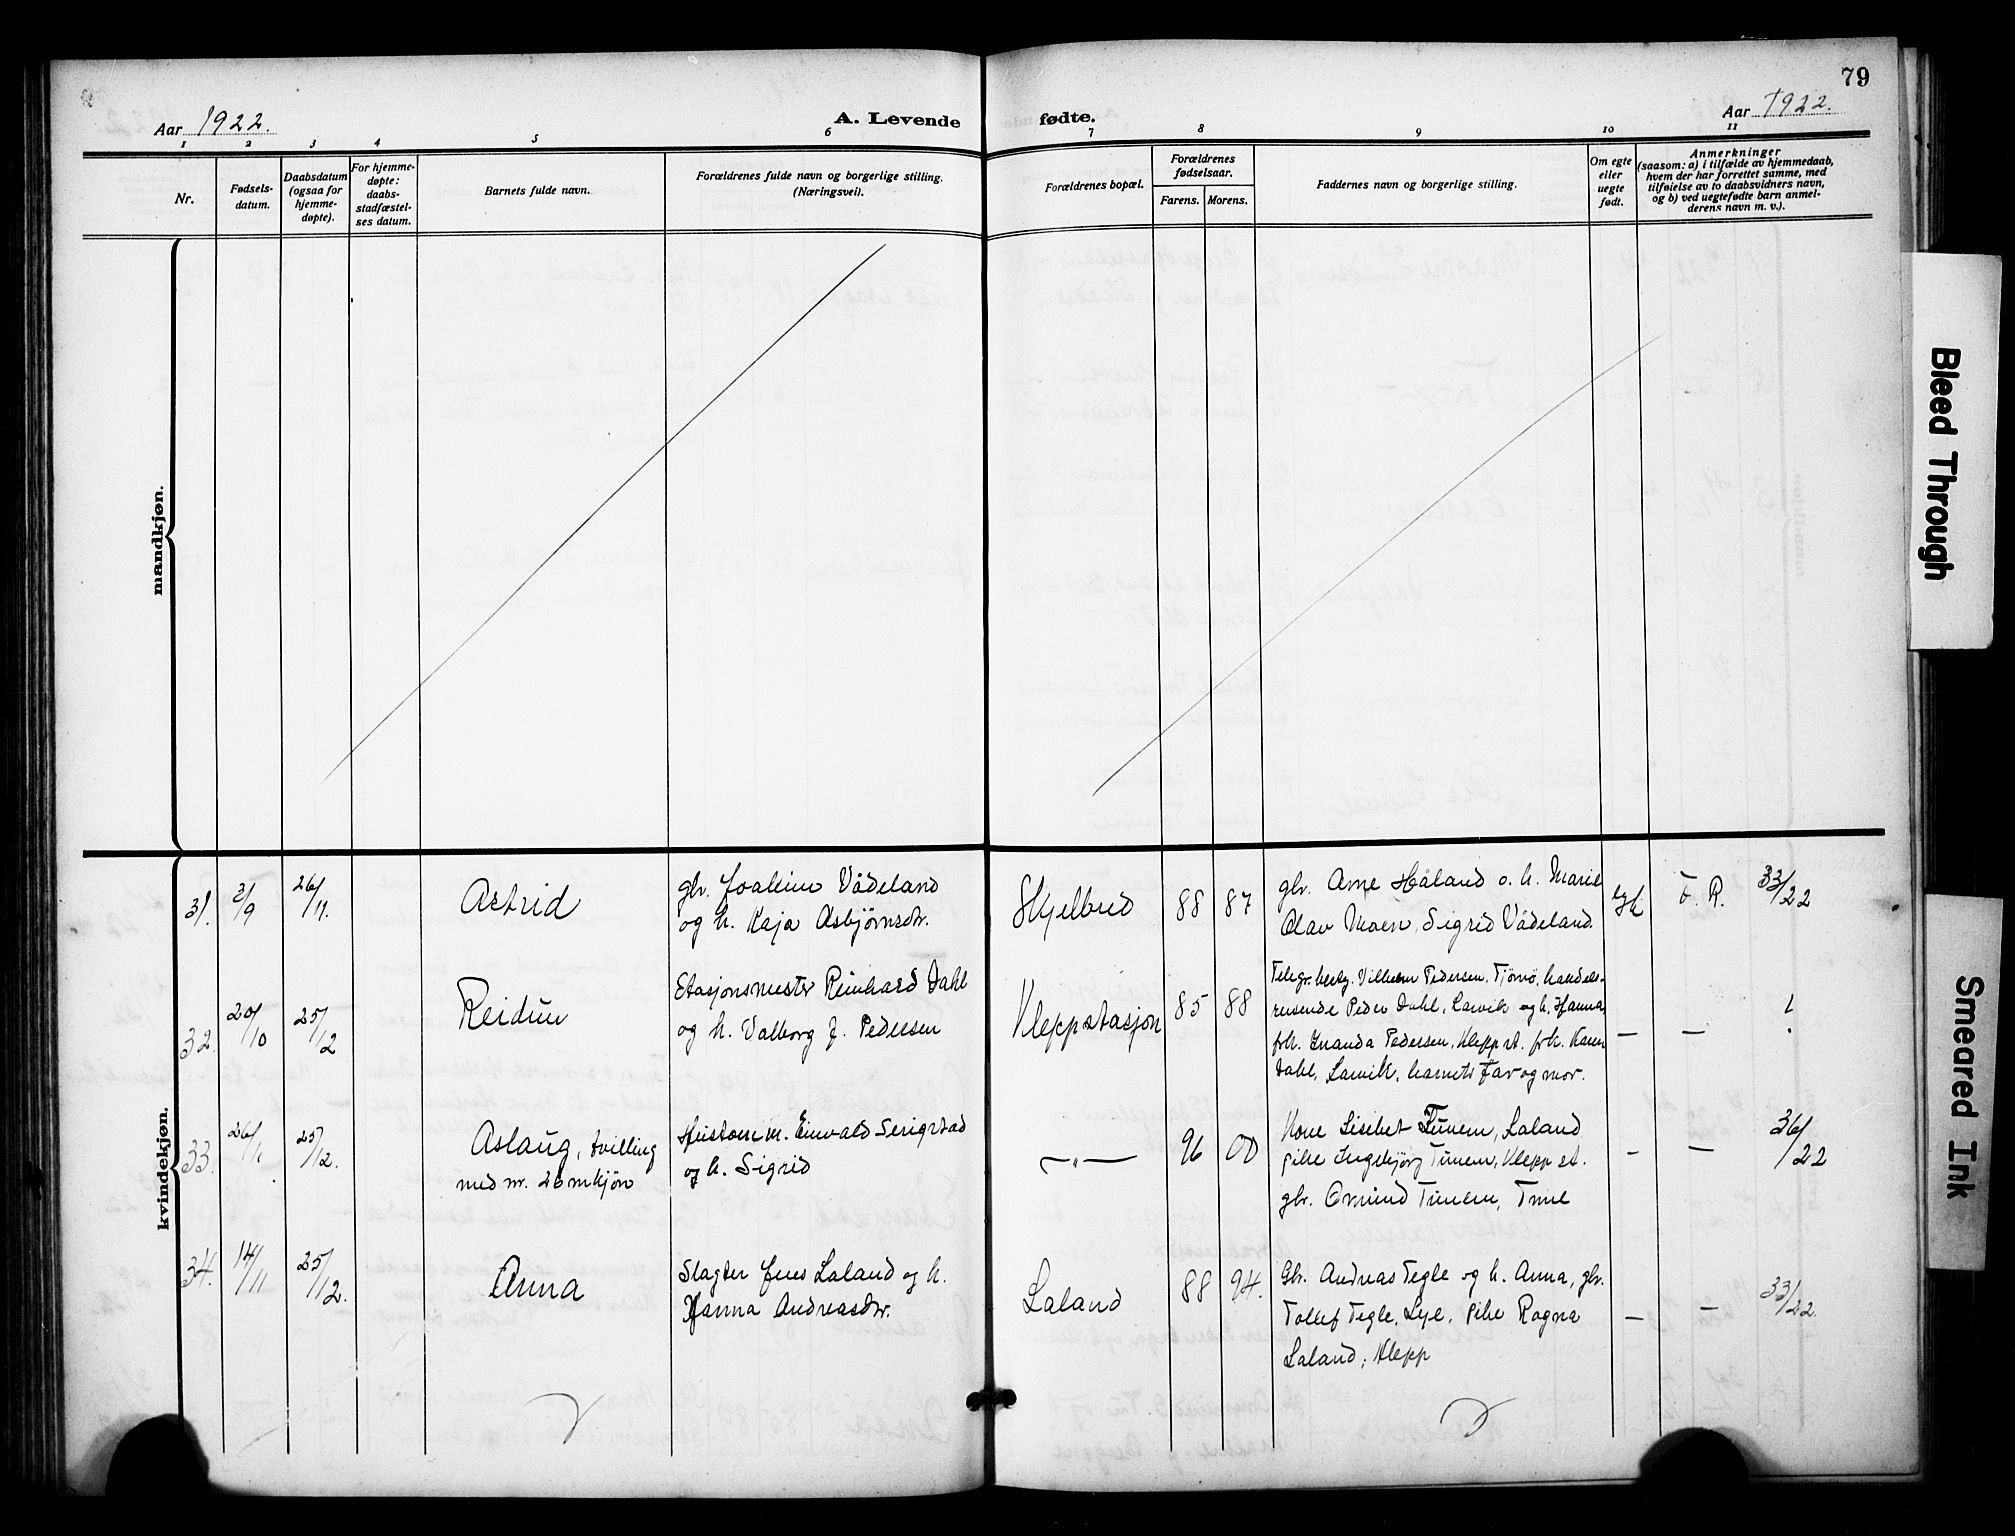 79
Aar 1922.
A. Levende
fødte.
Aar 1922.
1 2 3 4 5 6 7 8 9 10 11
Nr.
Fødsels-
datum.
Daabsdatum
(ogsaa for
hjemme-
døpte).
For hjemme-
døpte:
daabs-
stadfæstel-
ses datum.
Barnets fulde navn.
Forældrenes fulde navn og borgerlige stilling.
(Næringsvei).
Forældrenes bopæl.
Forældrenes
fødselsaar.
Farens. Morens.
Faddernes navn og borgerlige stilling.
Om egte
eller
uegte
født.
Anmerkninger
(saasom: a) i tilfælde av hjemmedaab,
hvem der har forrettet samme, med
tilføielse av to daabsvidners navn,
og b) ved uegtefødte barn anmel-
derens navn m. v.).
mandkjøn.
kvindekjøn.
31. 3/9 26/11. Astrid
gbr. Joakim Vådeland
og h. Kaja Asbjørnsdr.
88 87
gbr. Arne Håland o. h. Marie
Olav Moen, Sigrid Vådeland.
F. R. 33/22
32. 20/10 25/12 Reidun
Stasjonsmester Reinhard Dahl
og h. Valborg f. Pedersen
Kleppstasjon 85 88
Vilhelm Pedersen, Tjömö, handels-
reisende Peder Dahl, Larvik og h. Hanna,
frk. Pedersen, Klepp st. frk. Karen
Dahl, Larvik, barnets far og mor.
— — !
33. 26/11 25/12. Aslaug, tvilling
med nr. 26 mkjön
Einvald Serigstad
og h. Sigrid
—„— 96 00
Kone Lisebet Tunem, Laland
pike Ingebjörg Tunem, Klepp st.
gbr. Tunem, Time
— — 36/22
34. 14/11 25/12. Anna
Slagter Jens Laland og h.
Hanna Andreasdtr.
Laland 88 94.
Gbr. Andreas Tegle og h. Anna, gbr.
Tollef Tegle, Lye, pike Ragna
Laland, Klepp
— — 33/22.
Bleed Through
Smeared Ink